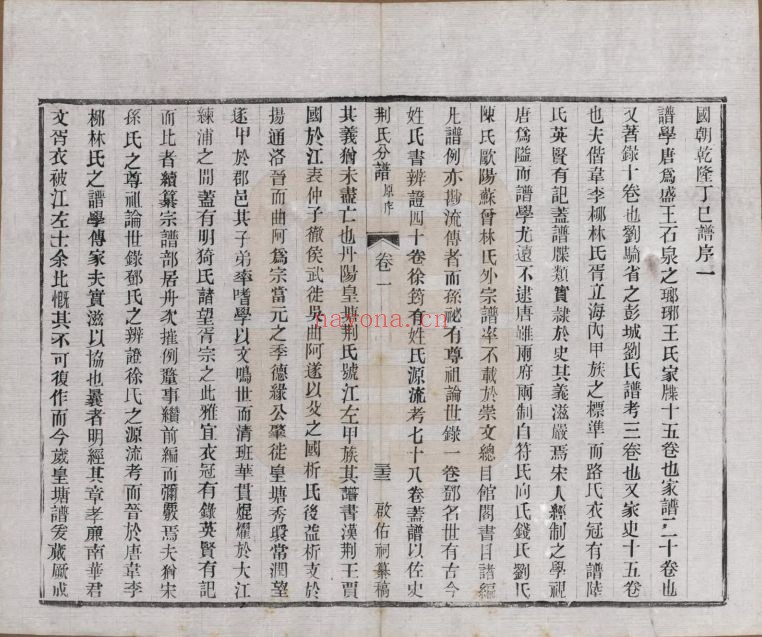 國朝乾隆丁巳譜序一
譜學唐爲盛王石泉之瑯琊王氏家牒十五卷也家譜二十卷也
又著錄十卷也劉騎省之彭城劉氏譜考三卷也又家史十五卷
也夫偕韋李柳林氏胥立海內甲族之標準而路氏衣冠有譜陸
氏英賢有記蓋譜牒類實隸於史其義滋嚴焉宋人經制之學視
唐爲隘而譜學尤遠不逮唐雖兩府兩制自符氏向氏錢氏劉氏
陳氏歐陽蘇曾林氏外宗譜率不載於崇文總目館閣書目諸編
凡譜例亦尠流傳者而孫祕有尊祖論世錄一卷鄧名世有古今
姓氏書辨證四十卷徐筠有姓氏源流考七十八卷蓋譜以佐史
荆氏分譜 原序 卷一 啟佑祠纂稿
其義猶未盡亡也丹陽皇塘荆氏號江左甲族其譜書漢荆王賈
國於江表仲子徹侯武徙吳曲阿遂以殳之國析氏後益析支於
揚通洛晉而曲阿爲宗當元之季德緣公肇徙皇塘秀環常潤望
遂甲於郡邑其子弟率嗜學以文鳴世而清班華貫焜燿於大江
練浦之間蓋有明猗氏諸望胥宗之此雅宜衣冠有錄英賢有記
而比者續纂宗譜部居舟次摧例釐事纘前編而彌嚴焉夫猶宋
孫氏之尊祖論世錄鄧氏之辨證徐氏之源流考而晉於唐韋李
柳林氏之譜學傳家夫實滋以協也曩者明經其章孝廉南華君
文胥衣被江左士余比慨其不可復作而今歲皇塘譜爰蕆厥成
nayona.cn